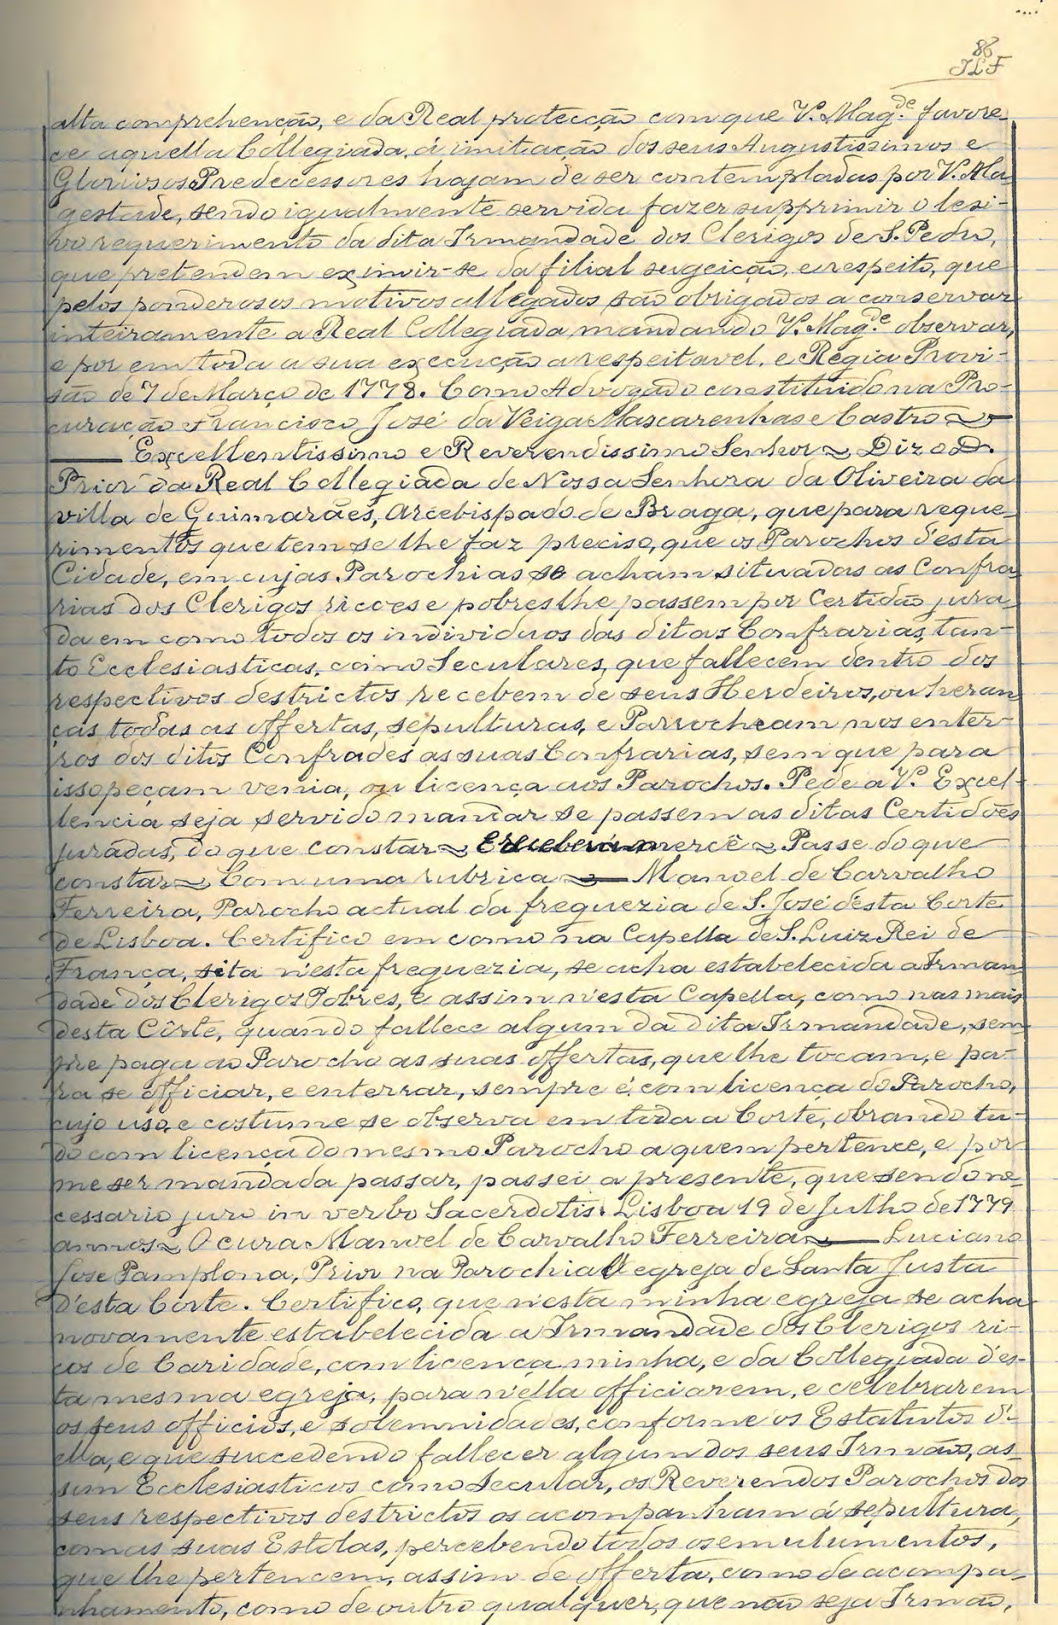 86
JLF
alta comprehenção, e da Real protecção com que V. Mag.de favore-
ce aquella Collegiada, á imitação dos seus Augustissimos e
Gloriosos Predecessores hajam de ser contempladas por V. Ma
gestade, sendo igualmente servida fazer supprimir o lesi-
vo requerimento da dita Irmandade dos Clerigos de S. Pedro,
que pretendem eximir-se da filial sugeição, e respeito, que
pelos ponderosos motivos allegados, são obrigados a conservar
inteiramente a Real Collegiada, mandando V. Mag.de observar,
e por em toda a sua execução a respeitavel, e Regia Provi-
são de 7 de Março de 1778. Como Advogado constituido na Pro-
curação Francisco José da Veiga Mascarenhas e Castro ~
— Excellentissimo e Reverendissimo Senhor ~ Diz o D.
Prior da Real Collegiada de Nossa Senhora da Oliveira da
villa de Guimarães, Arcebispado de Braga, que para reque-
rimentos que tem se lhe faz preciso, que os Parochos d'esta
Cidade, em cujas Parochias se acham situadas as Confra-
rias dos Clerigos ricos e pobres lhe passem por Certidão jura-
da em como todos os individuos das ditas Confrarias, tan-
to Ecclesiasticas, como Seculares, que fallecem dentro dos
respectivos destrictos recebem de seus Herdeiros, ou heran
ças todas as offertas, sepulturas, e Parrocheam nos enter-
ros dos ditos Confrades as suas Confrarias, sem que para
isso peçam venia, ou licença aos Parochos. Pede a V. Excel-
lencia seja servido mandar se passem as ditas Certidões
juradas, do que constar ~ E receberá mercê ~ Passe do que
constar ~ Com uma rubrica ~ — Manoel de Carvalho
Ferreira, Parocho actual da freguezia de S. José d'esta Corte
de Lisboa. Certifico em como na Capella de S. Luiz Rei de
França, sita n'esta freguezia, se acha estabelecida a Irman-
dade dos Clerigos Pobres, e assim n'esta Capella, como nas mais
desta Côrte, quando fallece algum da dita Irmandade, sem-
pre paga ao Parocho as suas offertas, que lhe tocam, e pa-
ra se officiar, e enterrar, sempre é com licença do Parocho,
cujo uso, e costume se observa em toda a Corte, obrando tu-
do com licença do mesmo Parocho a quem pertence, e por
me ser mandada passar, passei a presente, que sendo ne-
cessario juro in verbo Sacerdotis. Lisboa 19 de Julho de 1779
annos ~ O cura Manoel de Carvalho Ferreira ~ — Luciano
José Pamplona, Prior na Parochial egreja de Santa Justa
d'esta Corte. Certifico, que n'esta minha egreja se acha
novamente estabelecida a Irmandade dos Clerigos ri-
cos de Caridade, com licença minha, e da Collegiada d'es-
ta mesma egreja, para n'ella officiarem, e celebrarem
os seus officios, e solemnidades, conforme os Estatutos d'-
ella, e que succedendo fallecer algum dos seus Irmãos, as-
sim Ecclesiasticos como Secular, os Reverendos Parochos dos
seus respectivos destrictos os acompanham á sepultura,
com as suas Estolas, percebendo todos os emulumentos,
que lhe pertencem, assim de offerta, como de acompa-
nhamento, como de outro qualquer, que não seja Irmão,